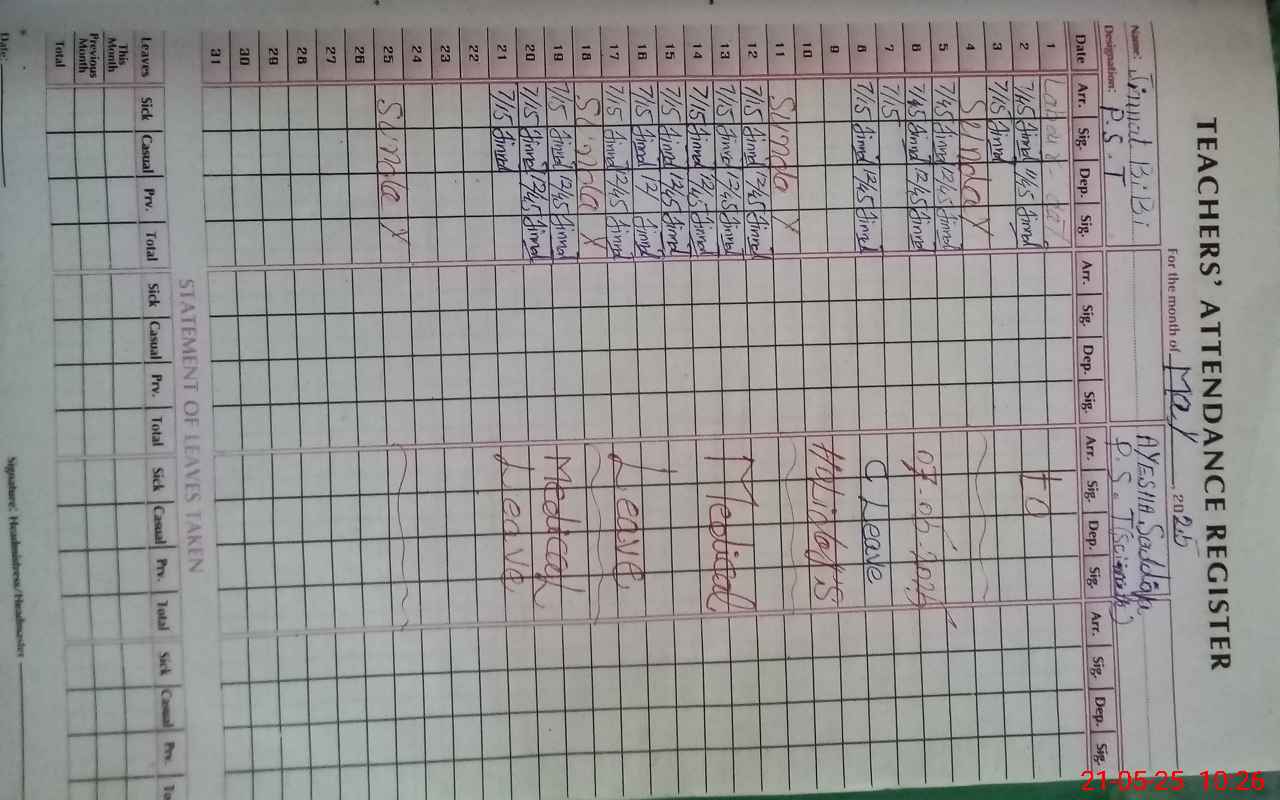 TEACHERS' ATTENDANCE REGISTER
For the month of May 2025
Name: Jinnal BiBi
AYESHA
Designation: P.S.T
P.S.T
Date Arr. Sig. Dep. Sig. Arr. Sig. Dep. Sig. Arr. Sig. Dep. Sig. Arr. Sig. Dep. Sig.
1 Labour day
2 7/45 Jinnal 11/45 Jinnal to
3 7/15 Jinnal
4 Sunday
5 7/45 Jinnal 12/45 Jinnal
6 7/45 Jinnal 12/45 Jinnal 07-05-2025
7 7/15
8 7/15 Jinnal 12/45 Jinnal C Leave
9
10 Holidays
11 Sunday
12 7/15 Jinnal 12/45 Jinnal
13 7/15 Jinnal 12/45 Jinnal Medical
14 7/15 Jinnal 12/45 Jinnal
15 7/15 Jinnal 12/45 Jinnal
16 7/15 Jinnal 12/ Jinnal
17 7/15 Jinnal 12/45 Jinnal Leave
18 Sunday
19 7/15 Jinnal 12/45 Jinnal Medical
20 7/15 Jinnal 12/45 Jinnal
21 7/15 Jinnal Leave
22
23
24
25 Sunday
26
27
28
29
30
31
STATEMENT OF LEAVES TAKEN
Leaves Sick Casual Prv. Total Sick Casual Prv. Total Sick Casual Prv. Total Sick Casual Prv. To
This Month
Previous Month
Total
Date:
Signature: Headmistress/Headmaster
21-05-25 10:26